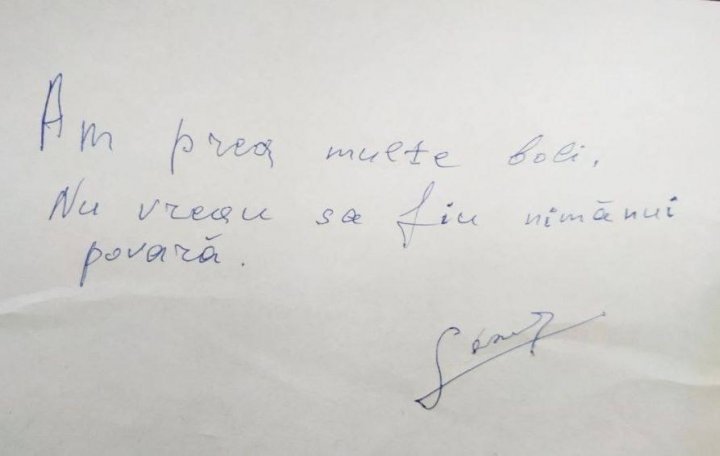 Am prea multe boli.
Nu vreau sa fiu nimănui
povară.